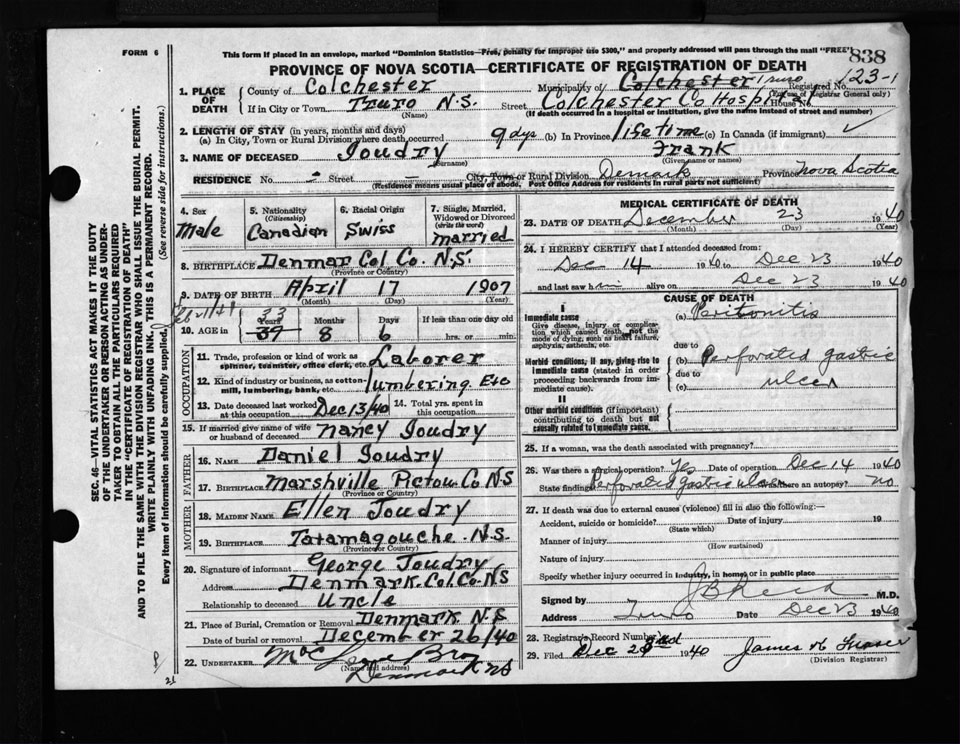 FORM 6
This form if placed in an envelope, marked "Dominion Statistics—Free, penalty for improper use $300," and properly addressed will pass through the mail "FREE"
838
PROVINCE OF NOVA SCOTIA—CERTIFICATE OF REGISTRATION OF DEATH
1. PLACE OF DEATH
County of Colchester Municipality of Colchester Truro Registered No. 123-1
(For use of Registrar General only)
If in City or Town Truro N.S. Street Colchester Co Hospital House No.
(Name) (If death occurred in a hospital or institution, give the name instead of street and number)
2. LENGTH OF STAY (in years, months and days)
(a) In City, Town or Rural Division where death occurred 9 dys (b) In Province lifetime (c) In Canada (if immigrant)
3. NAME OF DECEASED Joudry Frank
(Surname) (Given name or names)
RESIDENCE No. - Street - City, Town or Rural Division Demark Province Nova Scotia
(Residence means usual place of abode, Post Office Address for residents in rural parts not sufficient)
4. Sex Male
5. Nationality (Citizenship) Canadian
6. Racial Origin Swiss
7. Single, Married, Widowed or Divorced (write the word) married
8. BIRTHPLACE Denmar Col. Co. N.S.
(Province or Country)
9. DATE OF BIRTH April 17 1907
(Month) (Day) (Year)
10. AGE in Years Months Days If less than one day old
33
37 8 6 hrs. or min.
OCCUPATION
11. Trade, profession or kind of work as spinner, teamster, office clerk, etc. Laborer
12. Kind of industry or business, as cotton-mill, lumbering, bank, etc. lumbering Etc
13. Date deceased last worked at this occupation Dec 13/40 14. Total yrs. spent in this occupation
15. If married give name of wife or husband of deceased Nancy Joudry
FATHER
16. NAME Daniel Joudry
17. BIRTHPLACE Marshville Pictou Co N.S
(Province or Country)
MOTHER
18. MAIDEN NAME Ellen Joudry
19. BIRTHPLACE Tatamagouche N.S.
(Province or Country)
20. Signature of informant George Joudry
Address Denmark Col. Co. N.S
Relationship to deceased Uncle
21. Place of Burial, Cremation or Removal Denmark N.S
Date of burial or removal December 26/40
22. UNDERTAKER Bros
(Name and address)
Denmark NS
MEDICAL CERTIFICATE OF DEATH
23. DATE OF DEATH December 23 1940
(Month) (Day) (Year)
24. I HEREBY CERTIFY that I attended deceased from:
Dec 14 1940 to Dec 23 1940
and last saw him alive on Dec 23 1940
CAUSE OF DEATH
I
Immediate cause
Give disease, injury or complication which caused death, not the mode of dying, such as heart failure, asphyxia, asthenia, etc.
(a) Peritonitis
due to
Morbid conditions, if any, giving rise to immediate cause (stated in order proceeding backwards from immediate cause).
(b) Perforated gastric
due to
(c) ulcer
II
Other morbid conditions (if important) contributing to death but not causally related to immediate cause.
25. If a woman, was the death associated with pregnancy?
26. Was there a surgical operation? Yes Date of operation Dec 14 1940
State findings Perforated gastric ulcer Was there an autopsy? no
27. If death was due to external causes (violence) fill in also the following:—
Accident, suicide or homicide? Date of injury 19
(State which)
Manner of injury
(How sustained)
Nature of injury
Specify whether injury occurred in industry, in home, or in public place
Signed by M.D.
Address Truro Date Dec 23 1940
28. Registrar's Record Number
29. Filed Dec 1940
(Division Registrar)
SEC. 46—VITAL STATISTICS ACT MAKES IT THE DUTY
OF THE UNDERTAKER OR PERSON ACTING AS UNDER-
TAKER TO OBTAIN ALL THE PARTICULARS REQUIRED
IN THE "CERTIFICATE OF REGISTRATION OF DEATH"
AND TO FILE THE SAME WITH THE DIVISION REGISTRAR WHO SHALL ISSUE THE BURIAL PERMIT.
WRITE PLAINLY WITH UNFADING INK. THIS IS A PERMANENT RECORD.
Every item of information should be carefully supplied. (See reverse side for instructions.)
21